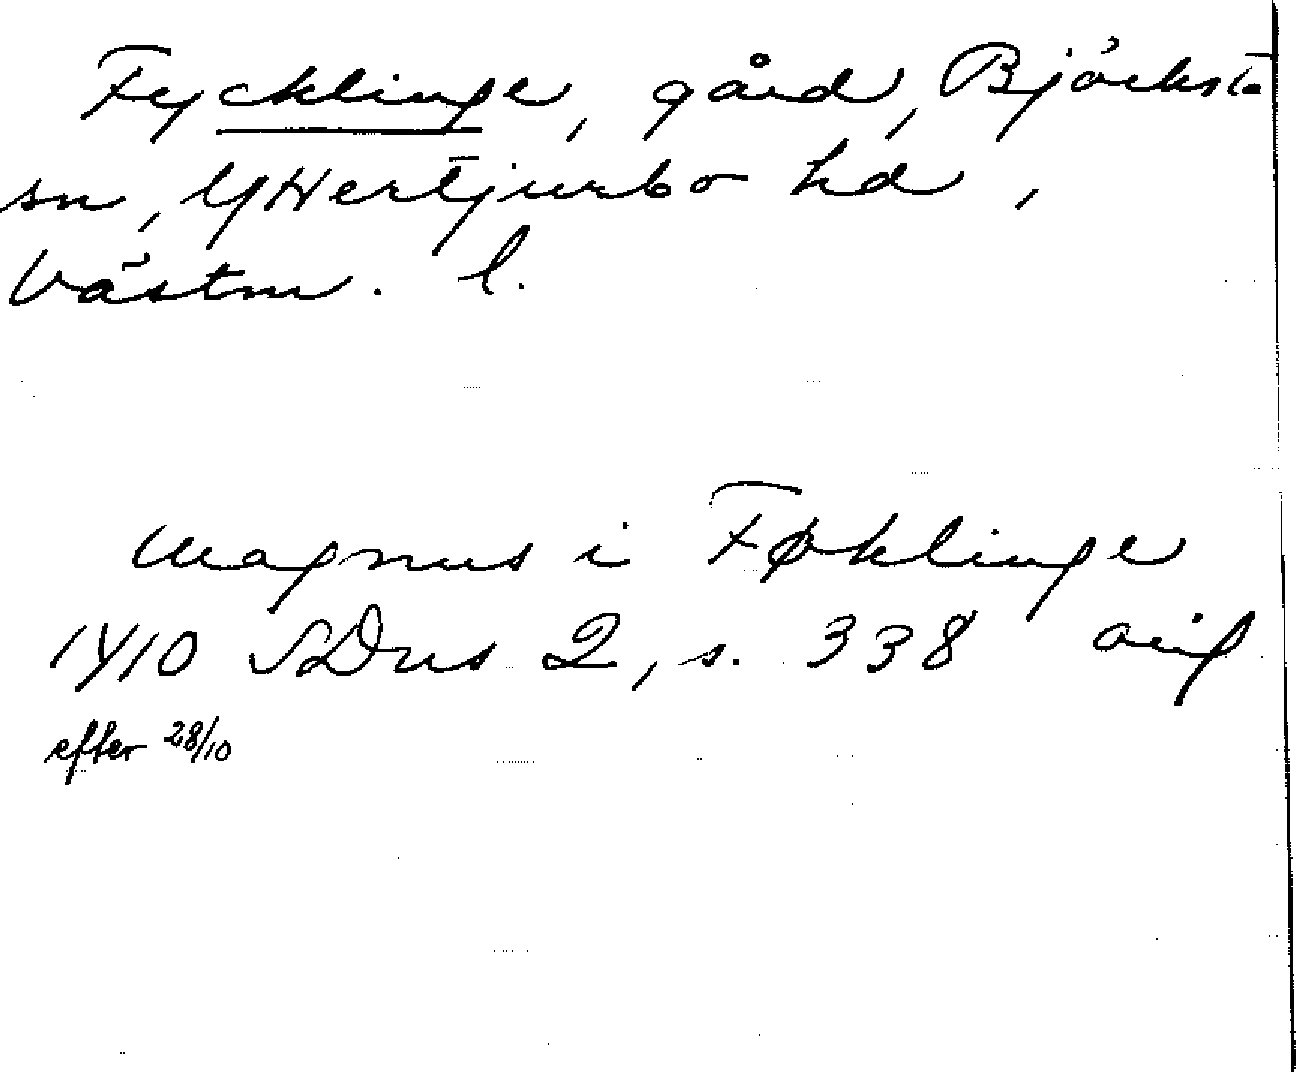 Fycklinge, gård, Björksta
sn, Yttertjurbo hd,
Västm. l.
Magnus i Føklinge
1410 SDns 2, s. 338 orig
efter 28/10